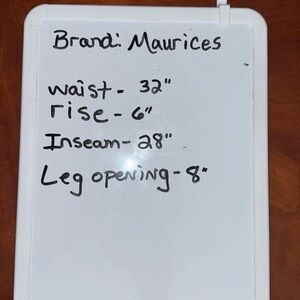 Brand: Maurices
waist - 32"
rise - 6"
Inseam - 28"
Leg opening - 8"